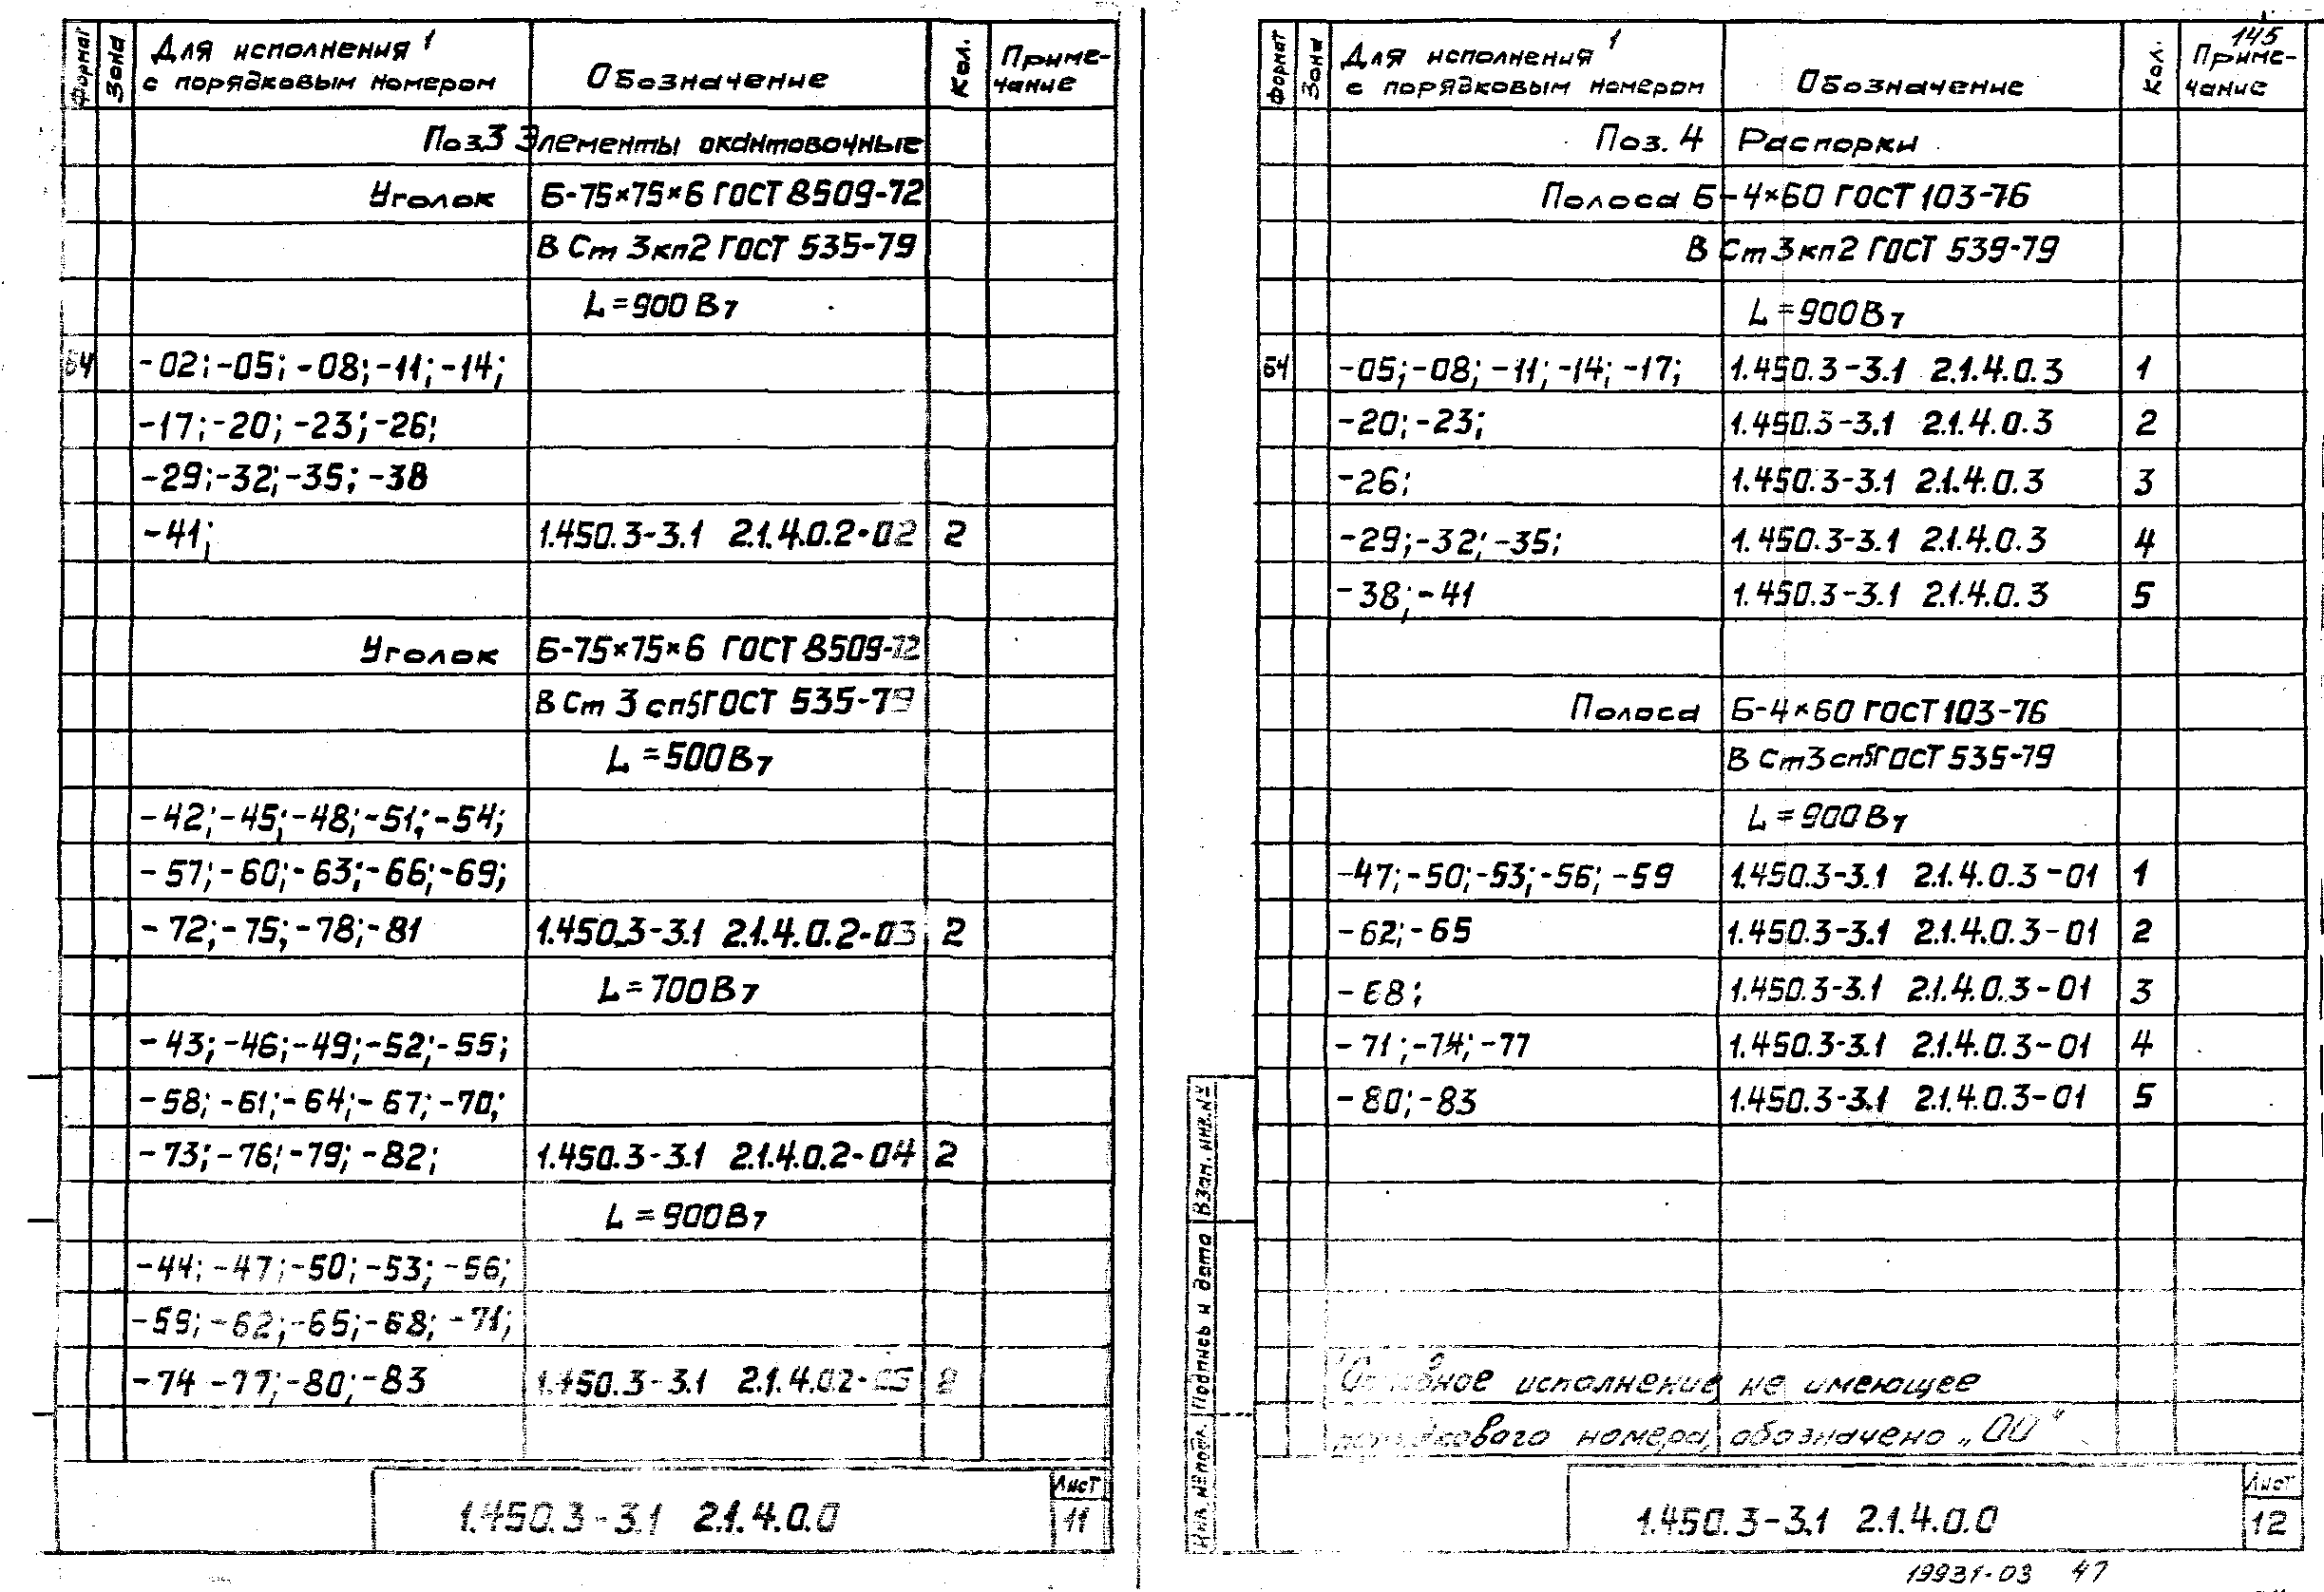 Формат Зона Для исполнения 1 с порядковым номером Обозначение Кол. Приме-
чание
Поз3 Элементы окантовочные
Уголок Б-75×75×6 ГОСТ 8509-72
В Ст 3кп2 ГОСТ 535-79
L=900 Вт
Б4 -02; -05; -08; -11; -14;
-17; -20; -23; -26;
-29; -32; -35; -38
-41; 1.450.3-3.1 2.1.4.0.2-02 2
Уголок Б-75×75×6 ГОСТ 8509-72
В Ст 3 сп5 ГОСТ 535-79
L=500 Вт
-42; -45; -48; -51; -54;
-57; -60; -63; -66; -69;
-72; -75; -78; -81 1.450.3-3.1 2.1.4.0.2-03 2
L=700 Вт
-43; -46; -49; -52; -55;
-58; -61; -64; -67; -70;
-73; -76; -79; -82; 1.450.3-3.1 2.1.4.0.2-04 2
L=900 Вт
-44; -47; -50; -53; -56;
-59; -62; -65; -68; -71;
-74 -77; -80; -83 1.450.3-3.1 2.1.4.02-05 2
1.450.3-3.1 2.1.4.0.0
Лист
11
145
Формат Зона Для исполнения 1 с порядковым номером Обозначение Кол. Приме-
чание
Поз. 4 Распорки
Полоса Б-4×60 ГОСТ 103-76
В Ст 3кп2 ГОСТ 539-79
L=900 Вт
Б4 -05; -08; -11; -14; -17; 1.450.3-3.1 2.1.4.0.3 1
-20; -23; 1.450.3-3.1 2.1.4.0.3 2
-26; 1.450.3-3.1 2.1.4.0.3 3
-29; -32; -35; 1.450.3-3.1 2.1.4.0.3 4
-38; -41 1.450.3-3.1 2.1.4.0.3 5
Полоса Б-4×60 ГОСТ 103-76
В Ст3 сп5 ГОСТ 535-79
L=900 Вт
-47; -50; -53; -56; -59 1.450.3-3.1 2.1.4.0.3-01 1
-62; -65 1.450.3-3.1 2.1.4.0.3-01 2
-68; 1.450.3-3.1 2.1.4.0.3-01 3
-71; -74; -77 1.450.3-3.1 2.1.4.0.3-01 4
-80; -83 1.450.3-3.1 2.1.4.0.3-01 5
1 Основное исполнение не имеющее
порядкового номера, обозначено „00"
Инв. № подл. Подпись и дата Взам. инв. №
1.450.3-3.1 2.1.4.0.0
Лист
12
19931-03 47